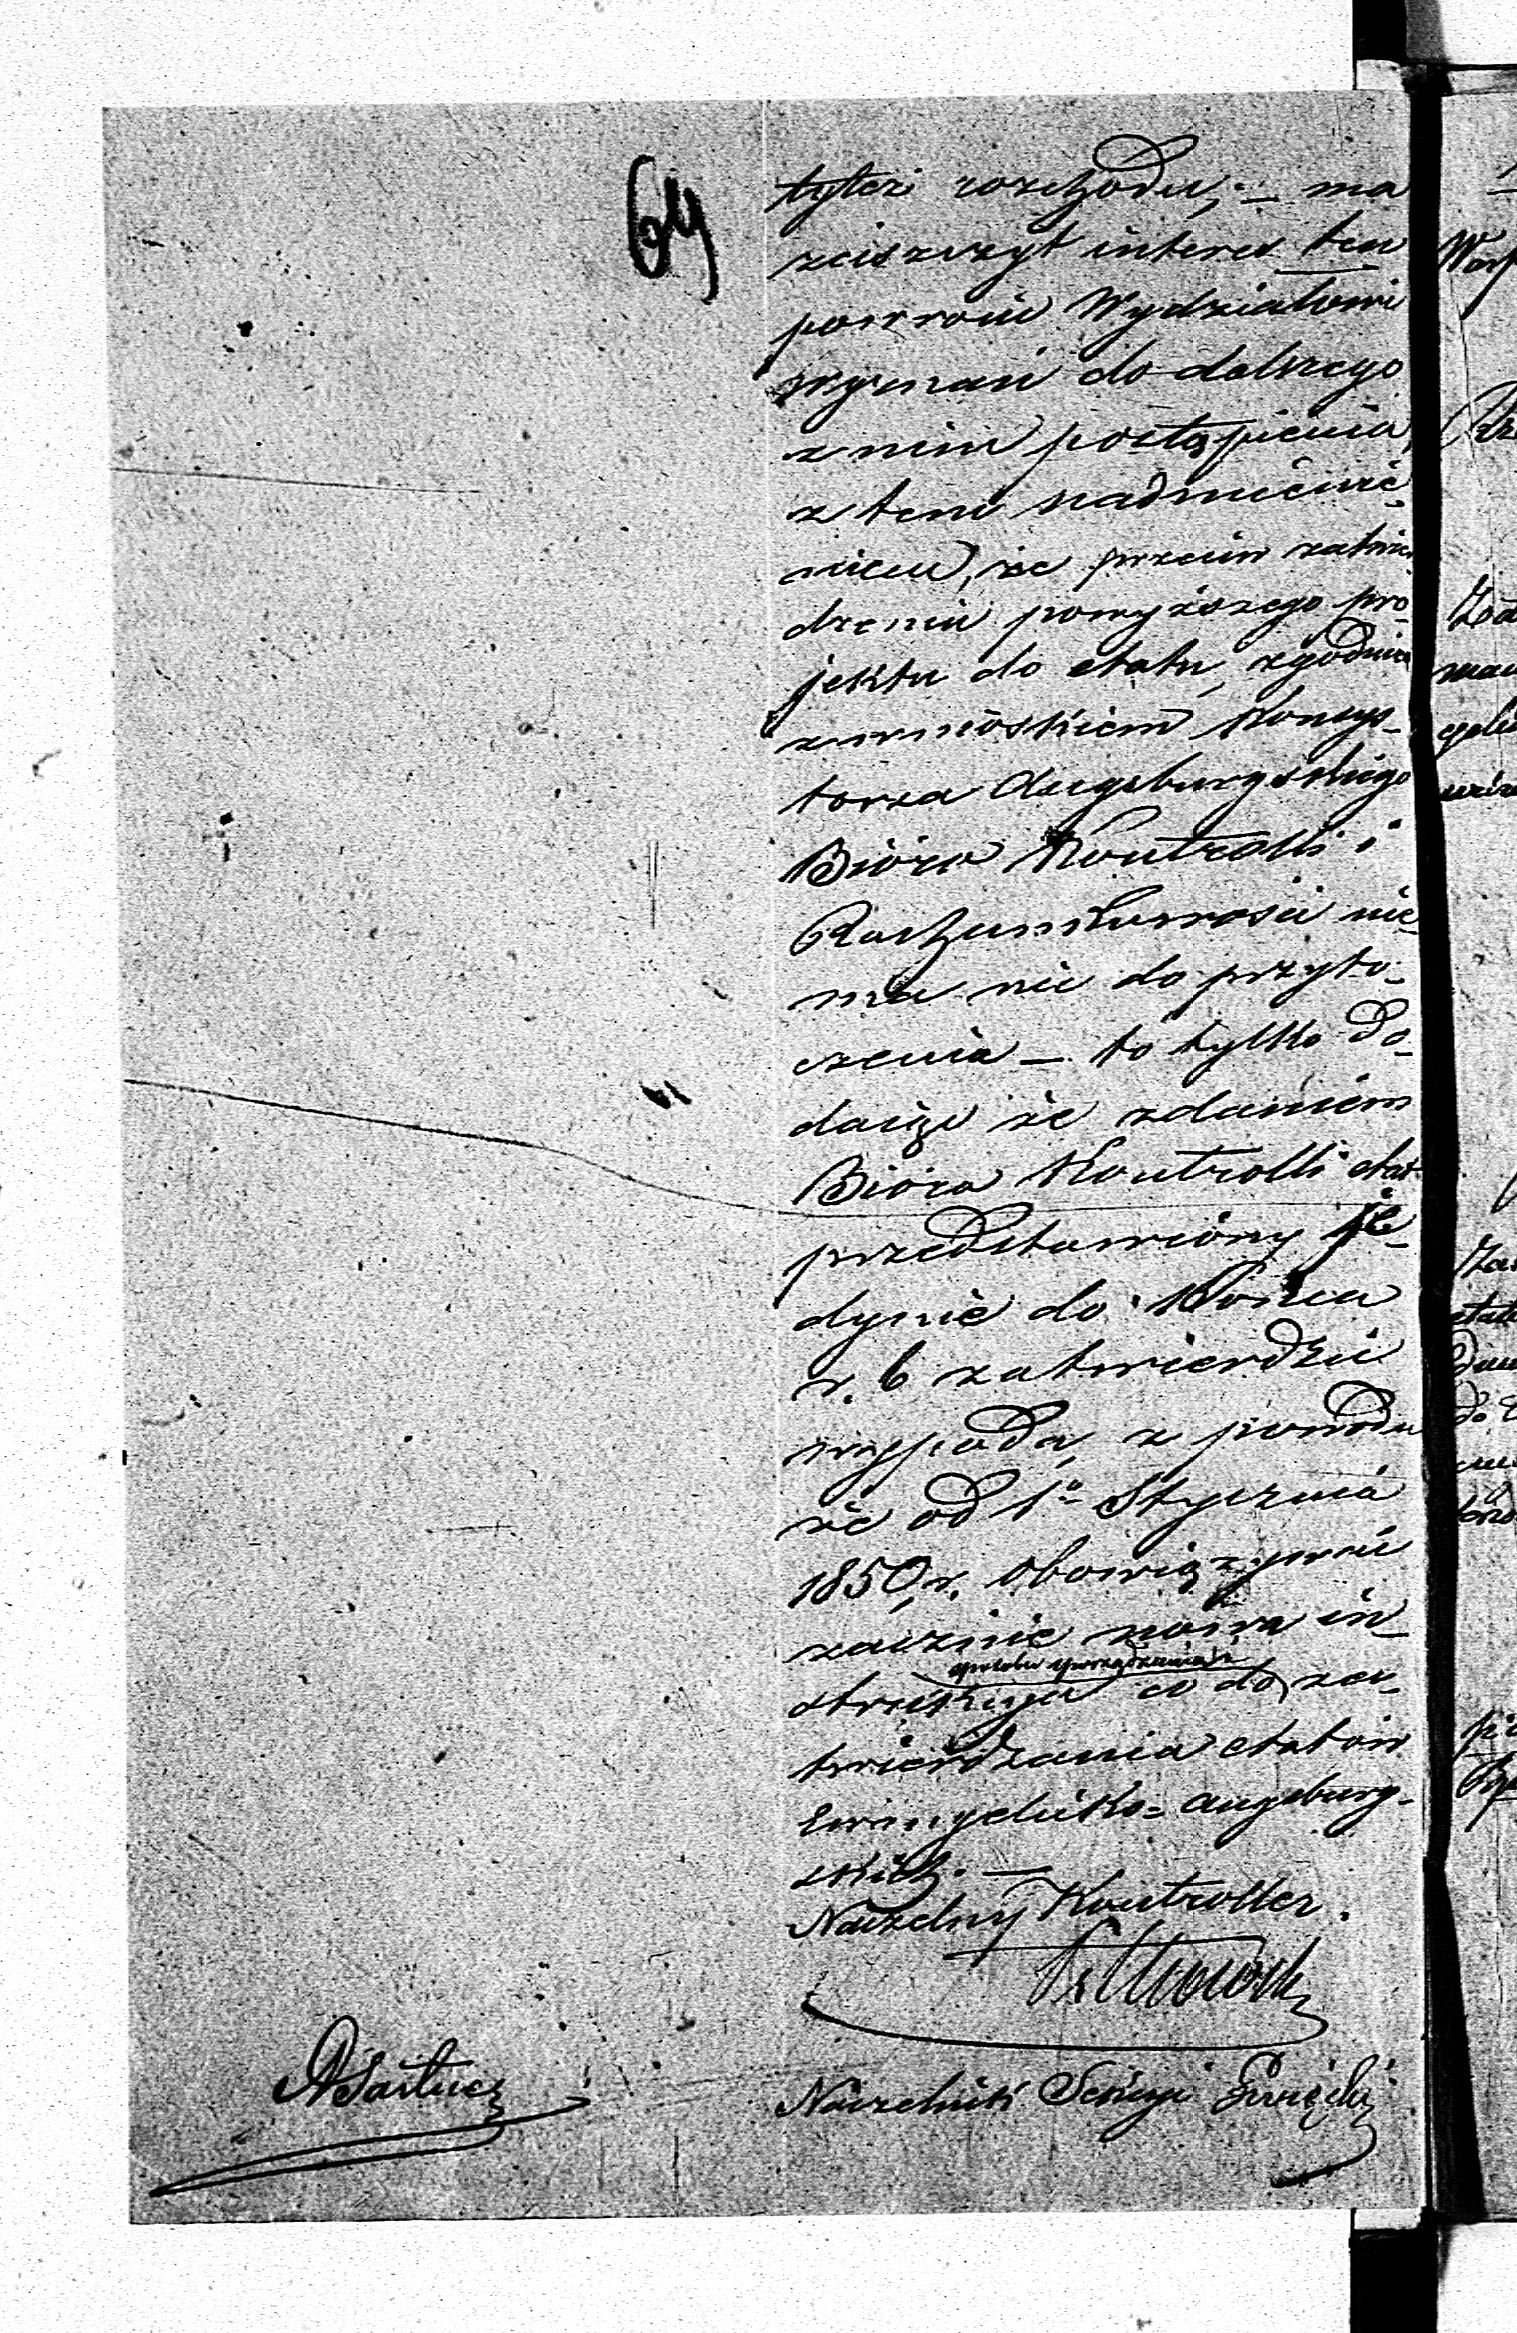 64
tyleż rozchodu; — ma
zaszczyt interes ten
powrócić Wydziałowi
wyznań do dalszego
z nim postąpienia,
z tem nadmienie-
niem, że przeciw zatwier-
dzeniu powyższego pro-
jektu do etatu, zgodnie
z wnioskiem Konsys-
torza Augsburgskiego
Bióro Kontrolli i
Rachunkowości nie-
ma nic do przyto-
czenia — to tylko do-
dając że zdaniem
Bióra Kontrolli etat
przedstawiony je-
dynie do końca
r. b zatwierdzić
wypada, z powodu
że od 1o Stycznia
1850 r. obowiązywać
zacznie nowa in-
sposobu sporządzania i
strukcya co do za-
twierdzania etatów
Ewangelicko-augsburg-
skich. —
Naczelny Kontroller.
Naczelnik Sekcyi